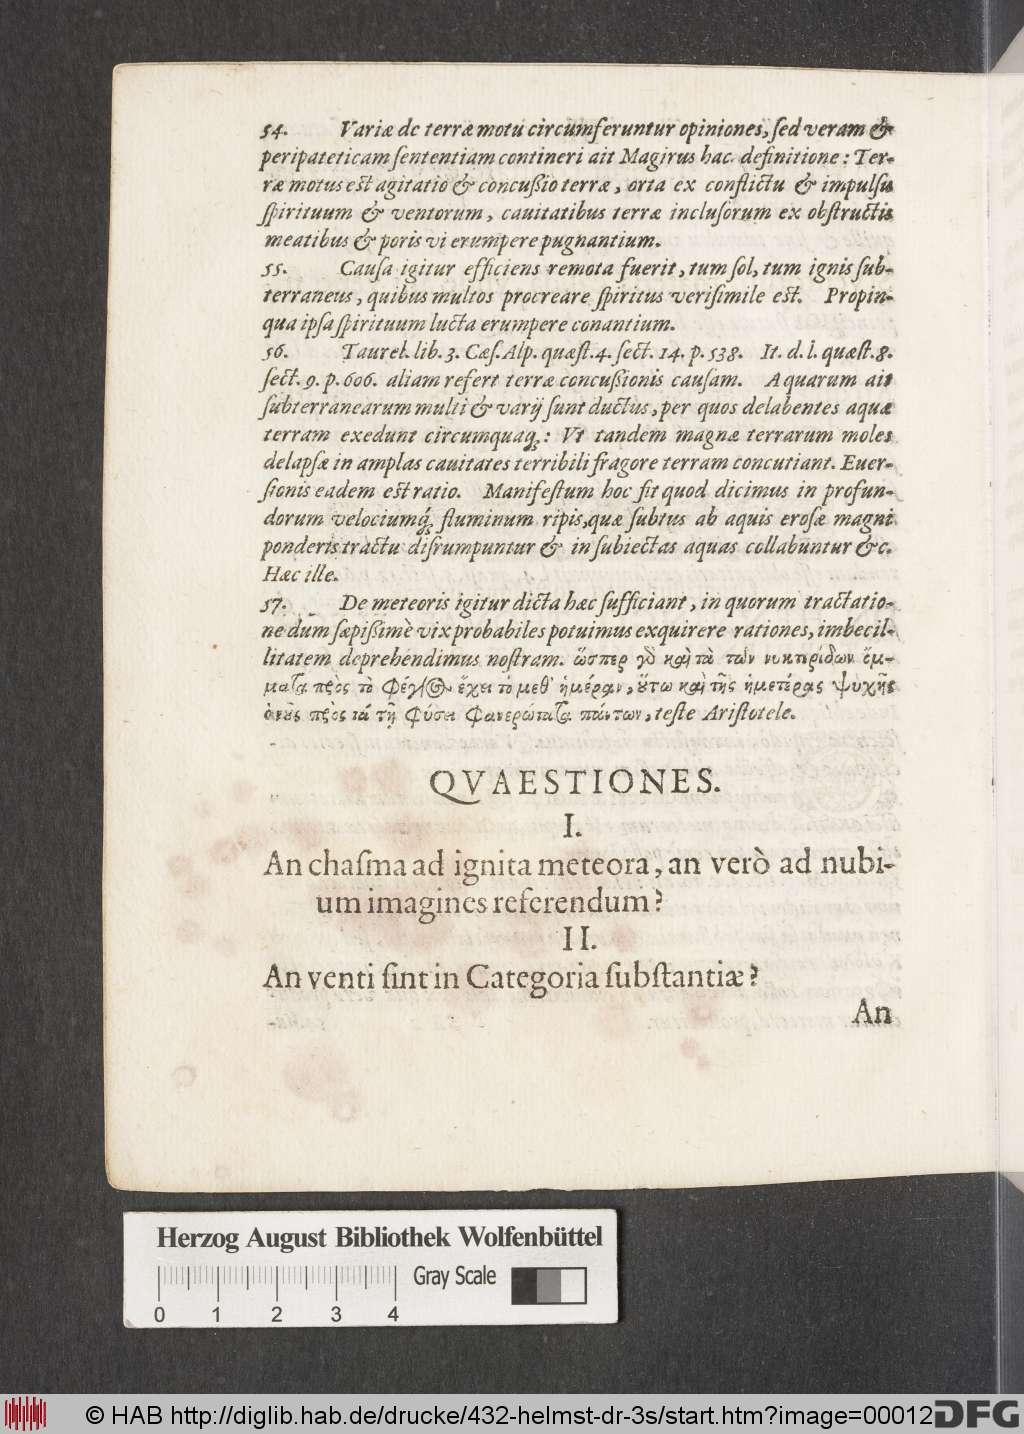 54. Variæ de terræ motu circumferuntur opiniones, ſed veram &
peripateticam ſententiam contineri ait Magirus hac definitione: Ter-
ræ motus est agitatio & concuſsio terræ, orta ex conflictu & impulſu
ſpirituum & ventorum, cauitatibus terræ incluſorum ex obſtructis
meatibus & poris vi erumpere pugnantium.
55. Cauſa igitur efficiens remota fuerit, tum ſol, tum ignis ſub-
terraneus, quibus multos procreare ſpiritus veriſimile est. Propin-
qua ipſa ſpirituum lucta erumpere conantium.
56. Taurel. lib. 3. Cæſ. Alp. quæſt. 4. ſect. 14. p. 538. It. d. l. quæſt. 8.
ſect. 9. p. 606. aliam refert terræ concuſsionis cauſam. Aquarum ait
ſubterranearum multi & varij ſunt ductus, per quos delabentes aquæ
terram exedunt circumquaq;: Vt tandem magnæ terrarum moles
delapſæ in amplas cauitates terribili fragore terram concutiant. Euer-
ſionis eadem est ratio. Manifeſtum hoc fit quod dicimus in profun-
dorum velociumq́; fluminum ripis, quæ ſubtus ab aquis eroſæ magni
ponderis tractu diſrumpuntur & in ſubiectas aquas collabuntur &c.
Hæc ille.
57. De meteoris igitur dicta hæc ſufficiant, in quorum tractatio-
ne dum ſæpiſsimè vix probabiles potuimus exquirere rationes, imbecil-
litatem deprehendimus noſtram. ὥσπερ γὸ καὶ τὰ τῶν νυκτερίδων ὄμ-
ματα πρὸς τὸ φέγγος ἔχει τὸ μεθ' ἡμέραν, οὕτω καὶ τῆς ἡμετέρας ψυχῆς
ὁ νοῦς πρὸς τὰ τῇ φύσει φανερώτατα πάντων, teſte Ariſtotele.
QVAESTIONES.
I.
An chaſma ad ignita meteora, an verò ad nubi-
um imagines referendum?
II.
An venti ſint in Categoria ſubſtantiæ?
An
Herzog August Bibliothek Wolfenbüttel
Gray Scale
0 1 2 3 4
© HAB http://diglib.hab.de/drucke/432-helmst-dr-3s/start.htm?image=00012
DFG